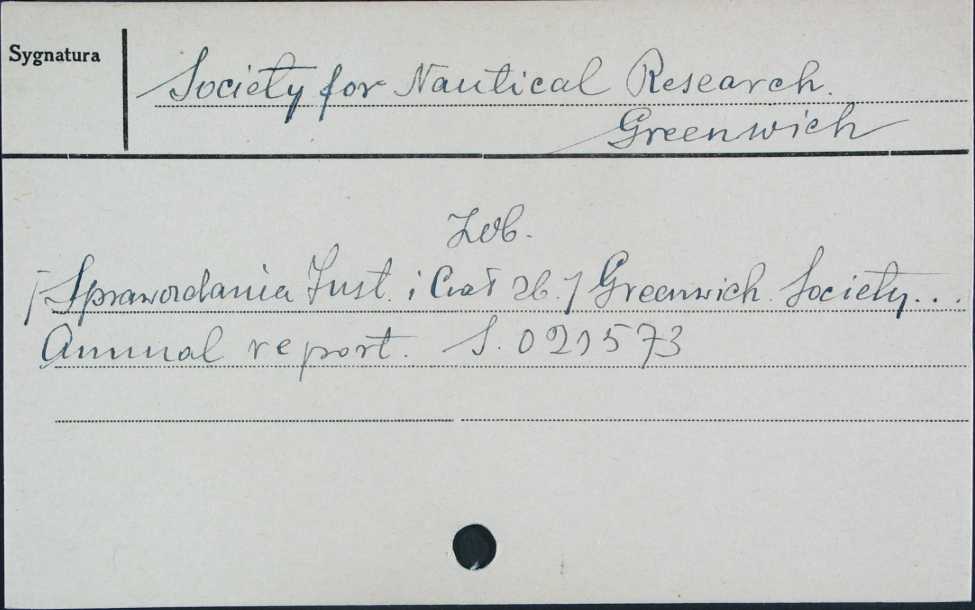 Sygnatura
Society for Nautical Research.
Greenwich
Zob.
/Sprawozdania Inst. i Ciał zb./ Greenwich. Society...
Annual report. S. 021573